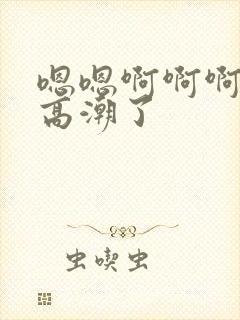 嗯嗯啊啊啊
高潮了
虫喫虫